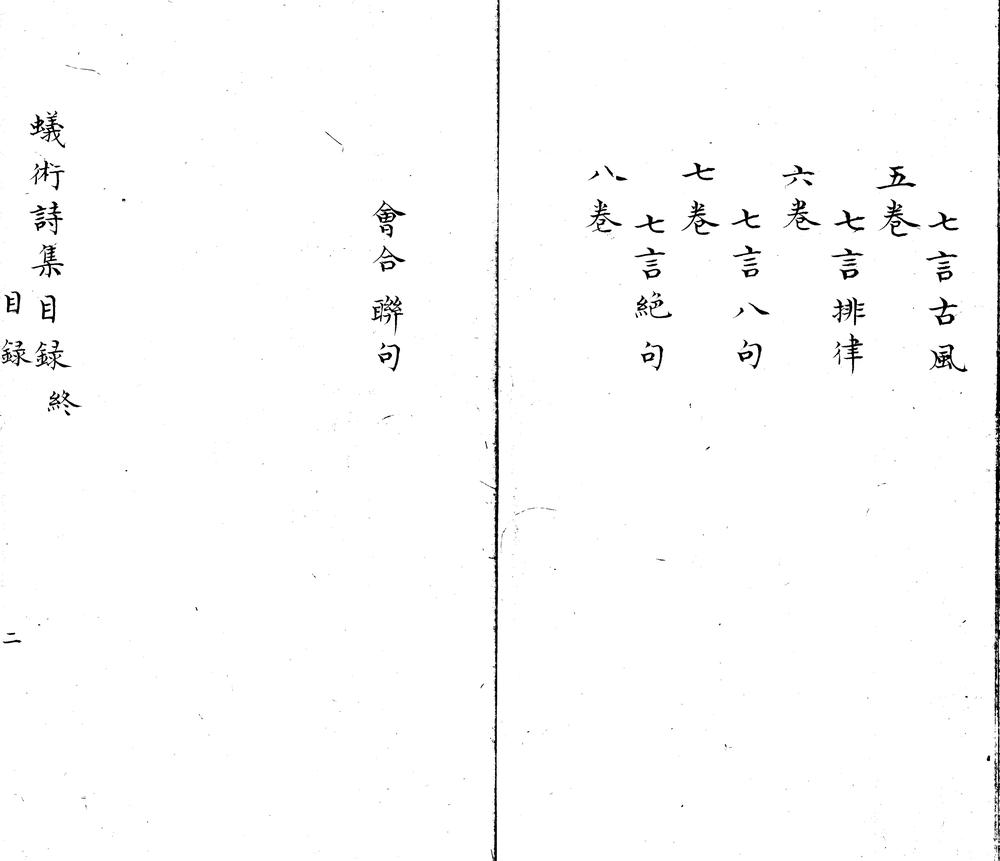 七言古風
五卷
七言排律
六卷
七言八句
七卷
七言絶句
八卷
會合聯句
蟻術詩集目録終
目録
二